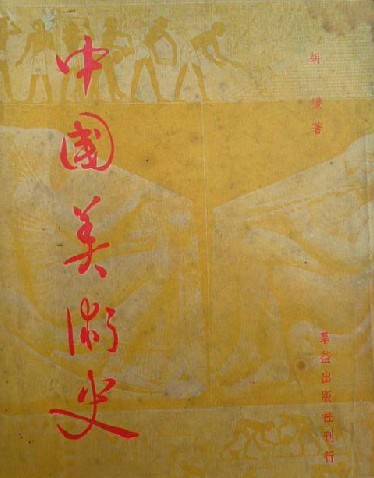 胡蠻著
中國美術史
羣益出版社刊行